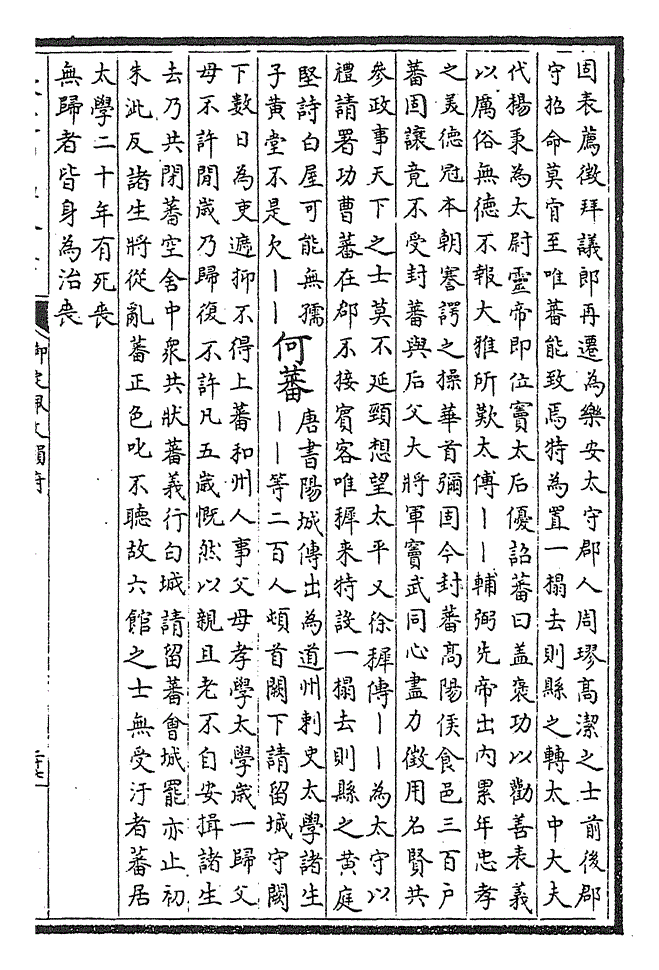 固表薦徵拜議郎再遷為樂安太守郡人周璆髙潔之士前後郡
守招命莫肎至唯蕃能致焉特為置一榻去則縣之轉太中大夫
代楊秉為太尉靈帝即位竇太后優詔蕃曰盖褒功以勸善表義
以厲俗無德不報大雅所歎太傅丨丨輔弼先帝出內累年忠孝
之美德冠本朝謇諤之操華首彌固今封蕃髙陽侯食邑三百户
蕃固讓竟不受封蕃與后父大將軍竇武同心盡力徵用名賢共
參政事天下之士莫不延頸想望太平又徐穉傳丨丨為太守以
禮請署功曹蕃在郡不接賓客唯穉来特設一榻去則縣之黄庭
堅詩白屋可能無孺
子黄堂不是欠丨丨
何蕃
唐書陽城傳出為道州刺史太學諸生
丨丨等二百人頓首闕下請留城守闕
下數日為吏遮抑不得上蕃和州人事父母孝學太學歲一歸父
母不許閒歲乃歸復不許凡五歲慨然以親且老不自安揖諸生
去乃共閉蕃空舍中衆共狀蕃義行白城請留蕃會城罷亦止初
朱泚反諸生將從亂蕃正色叱不聽故六館之士無受汙者蕃居
太學二十年有死喪
無歸者皆身為治喪
御定佩文韻府